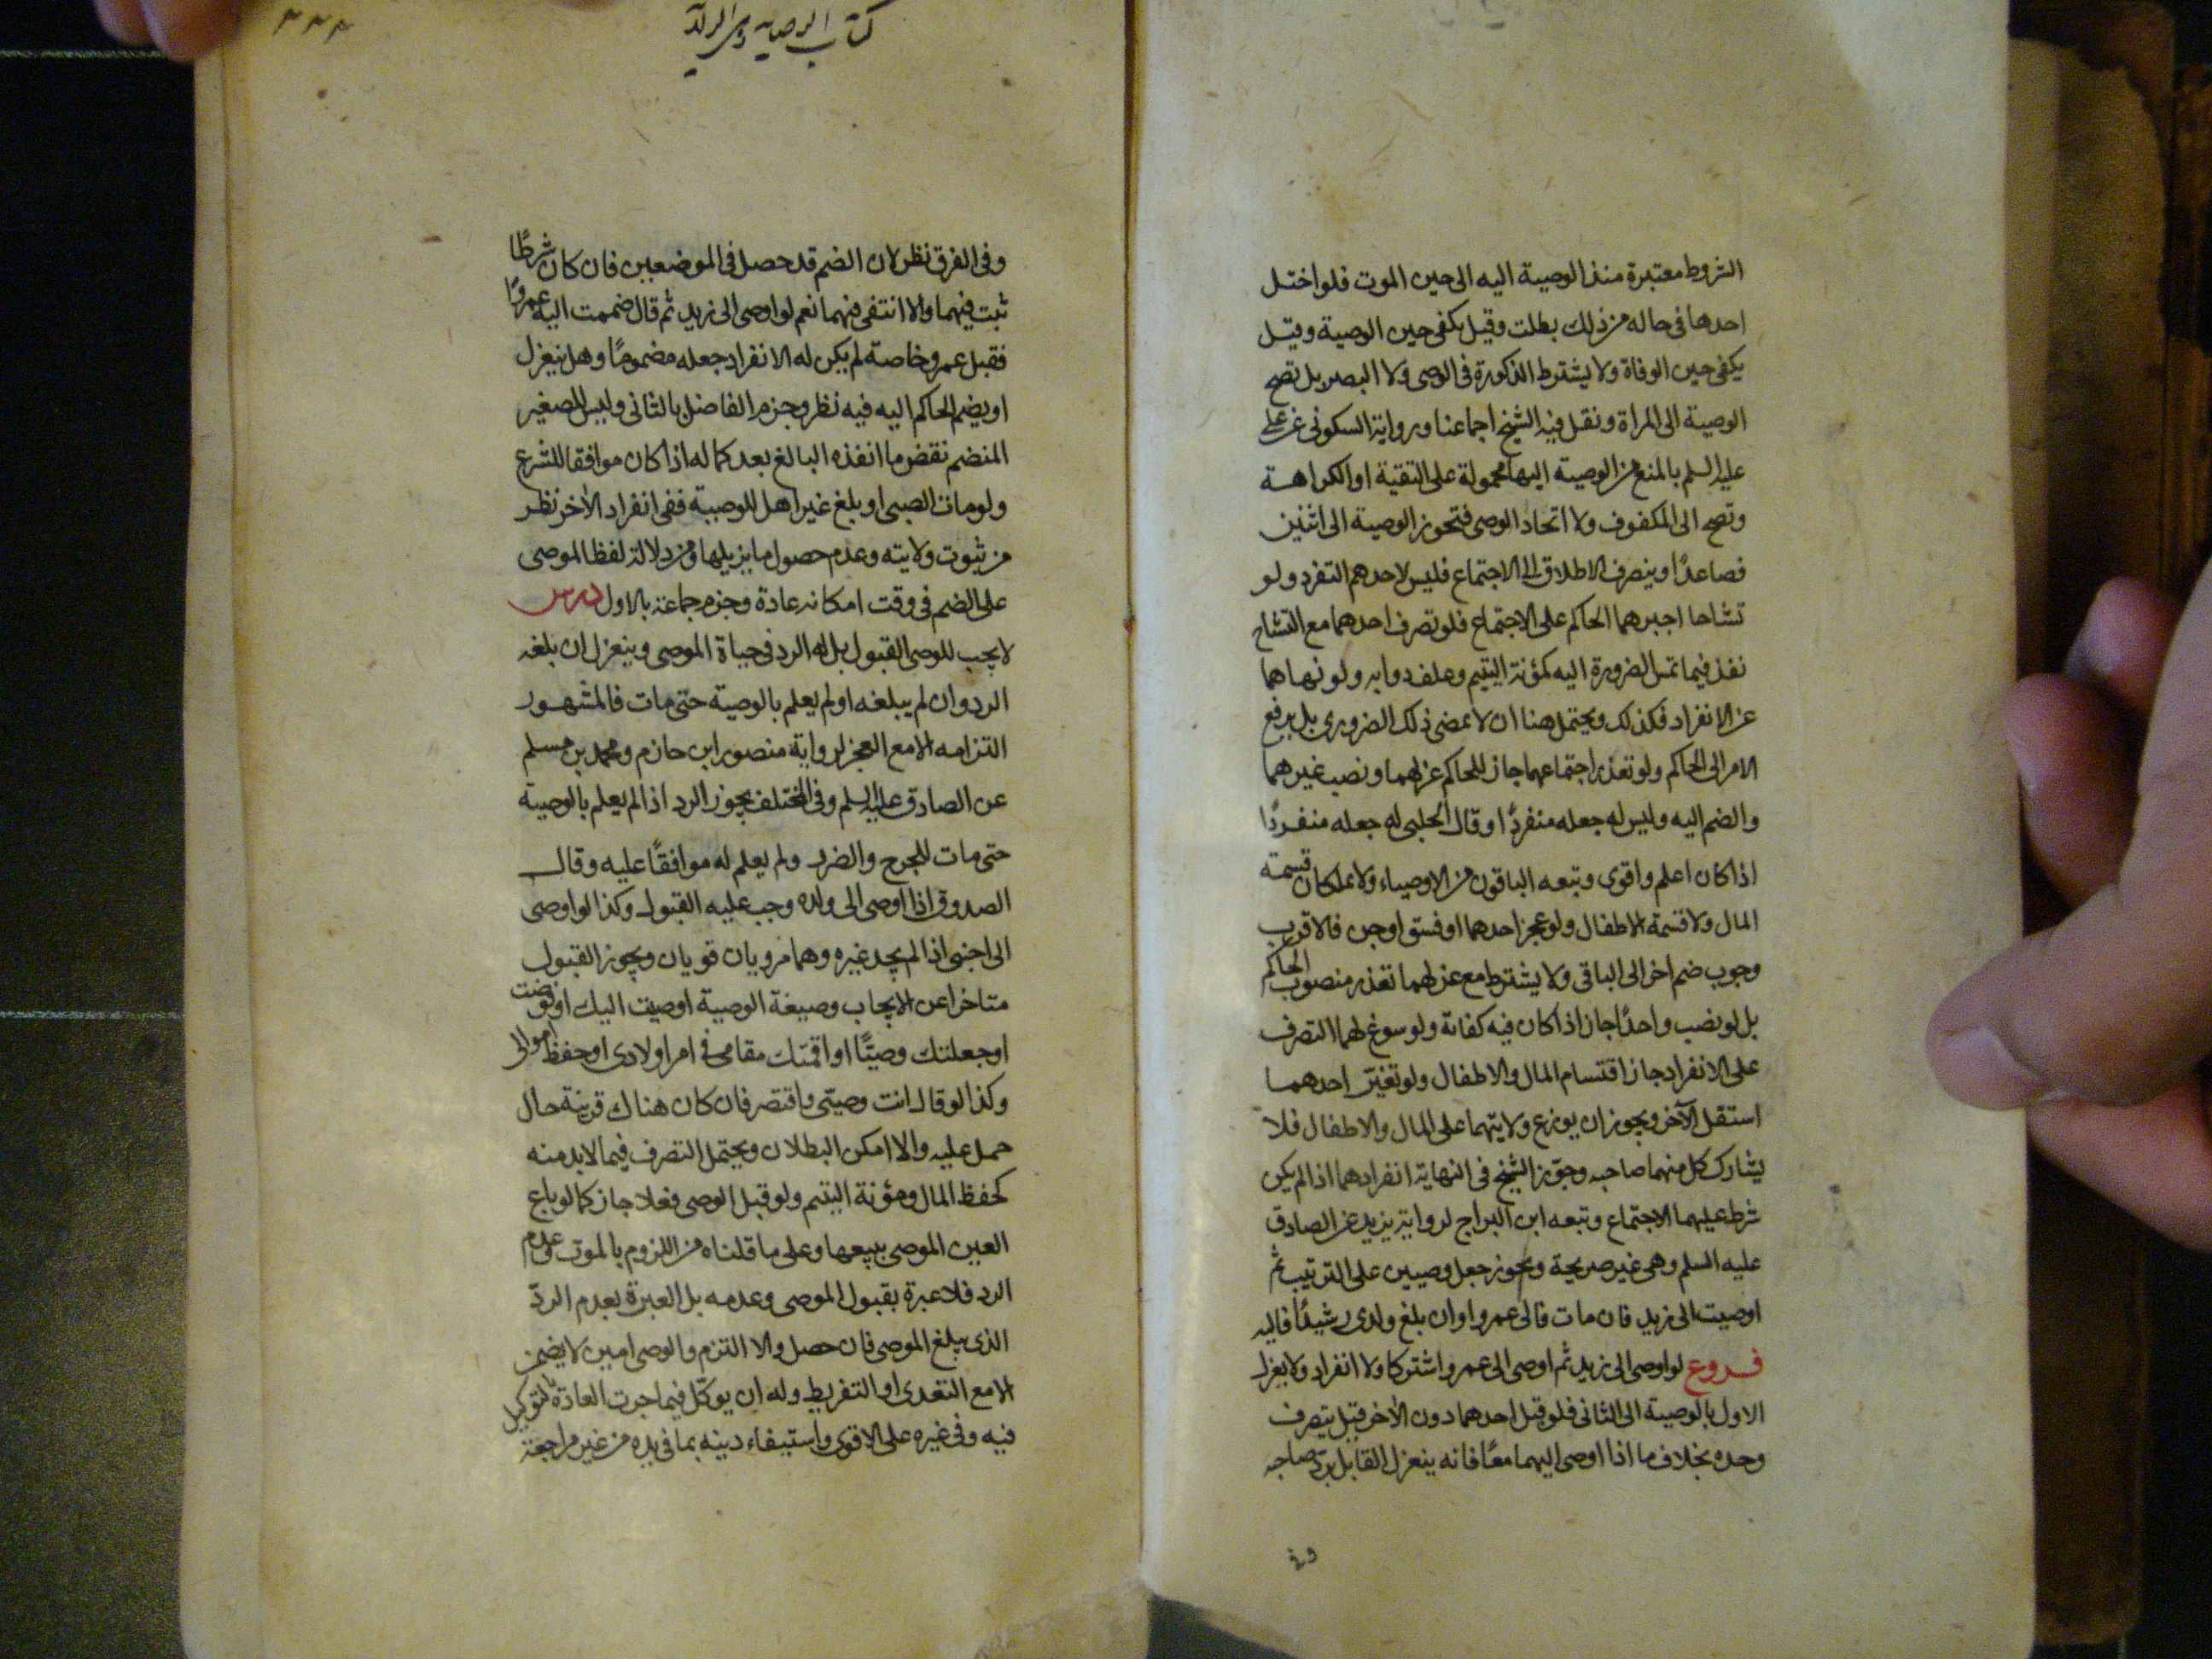 الشروط معتبرة منذ الوصية اليه الى حين الموت فلو اختل
احدها فى حاله من ذلك بطلت وقيل يكفى حين الوصية وقيل
يكفى حين الوفاة ولا يشترط الذكورة فى الوصى ولا البصر بل تصح
الوصية الى المراة ونقل فيه الشيخ اجماعنا ورواية السكونى عن على
عليه السلم بالمنع من الوصية اليها محمولة على التقية او الكراهة
وتصح الى المكفوف ولا اتحاد الوصى فتجوز الوصية الى اثنين
فصاعدًا وينصرف الاطلاق الى الاجتماع فليس لاحدهم التفرد ولو
تشاحا اجبرهما الحاكم على الاجتماع فلو تصرف احدهما مع التشاح
نفذ فيما تمس الضرورة اليه كمؤنة اليتيم وعلف دوابه ولو نهاهما
عن الانفراد فكذلك ويحتمل هنا ان لا يمضى ذلك الضرورى بل يرفع
الامر الى الحاكم ولو تعذر اجتماعهما جاز للحاكم عزلهما ونصب غيرهما
والضم اليه وليس له جعله منفردًا وقال الحلبى له جعله منفردًا
اذا كان اعلم واقوى وتبعه الباقون من الاوصياء ولا يملكان قسمة
المال ولا قسمة الاطفال ولو عجز احدهما او فسق او جن فالاقرب
وجوب ضم اخر الى الباقى ولا يشترط مع عزلهما تعذر منصوب الحاكم
بل لو نصب واحدًا جاز اذا كان فيه كفاية ولو سوغ لهما التصرف
على الانفراد جاز اقتسام المال والاطفال ولو تغيّر احدهما
استقل الآخر ويجوز ان يوزع ولايتهما على المال والاطفال فلا
يشارك كل منهما صاحبه وجوّز الشيخ فى النهاية انفرادهما اذا لم يكن
شرط عليهما الاجتماع وتبعه ابن البراج لرواية يزيد عن الصادق
عليه السلم وهى غير صريحة ويجوز جعل وصيين على الترتيب ثم
اوصيت الى زيد فان مات فالى عمرو او ان بلغ ولدى رشيدًا فاليه
فروع لو اوصى الى زيد ثم اوصى الى عمرو اشتركا ولا انفراد ولا يعزل
الاول بالوصية الى الثانى فلو قبل احدهما دون الآخر قبل يتصرف
وحده بخلاف ما اذا اوصى اليهما معًا فانه ينعزل القابل برد صاحبه
وفى
٣٣٣
كتاب الوصية
وفى الفرق نظر لان الضم قد حصل فى الموضعين فان كان شرطًا
ثبت فيهما والا انتفى فيهما نعم لو اوصى الى زيد ثم قال ضممت اليه عمروًا
فقبل عمرو خاصة لم يكن له الانفراد جعله مضمومًا وهل ينعزل
او يضم الحاكم اليه فيه نظر وجزم الفاضل بالثانى وليس للصغير
المنضم نقض ما انفذه البالغ بعد كماله اذا كان موافقا للشرع
ولو مات الصبى او بلغ غير اهل للوصية ففى انفراد الآخر نظر
من ثبوت ولايته وعدم حصول ما يزيلها ومن دلالة لفظ الموصى
على الضم فى وقت امكانه عادة وجزم جماعة بالاول درس
لا يجب للوصى القبول بل له الرد فى حياة الموصى وينعزل ان بلغه
الرد وان لم يبلغه او لم يعلم بالوصية حتى مات فالمشهور
التزامه الا مع العجز لرواية منصور ابن حازم ومحمد بن مسلم
عن الصادق عليه السلم وفى المختلف يجوز الرد اذا لم يعلم بالوصية
حتى مات للحرج والضرر ولم يعلم له موافقًا عليه وقال
الصدوق اذا اوصى الى ولده وجب عليه القبول وكذا لو اوصى
الى اجنبى اذا لم يجد غيره وهما مرويان قويان ويجوز القبول
متاخرا عن الايجاب وصيغة الوصية اوصيت اليك او فوضت
او جعلتك وصيًّا او اقمتك مقامى فى امر اولادى او حفظ اموالى
وكذا لو قال انت وصيّى واقتصر فان كان هناك قرينة حال
حمل عليه والا امكن البطلان ويحتمل التصرف فيما لا بد منه
كحفظ المال ومؤنة اليتيم ولو قبل الوصى فعلا جاز كما لو باع
العين الموصى ببيعها وعلى ما قلناه من اللزوم بالموت وعدم
الرد فلا عبرة بقبول الموصى وعدمه بل العبرة بعدم الردّ
الذى يبلغ الموصى فان حصل والا التزم والوصى امين لا يضمن
الا مع التعدى او التفريط وله ان يوكّل فيما جرت العادة بالتوكيل
فيه وفى غيره على الاقوى واستيفاء دينه بما فى يده من غير مراجعة